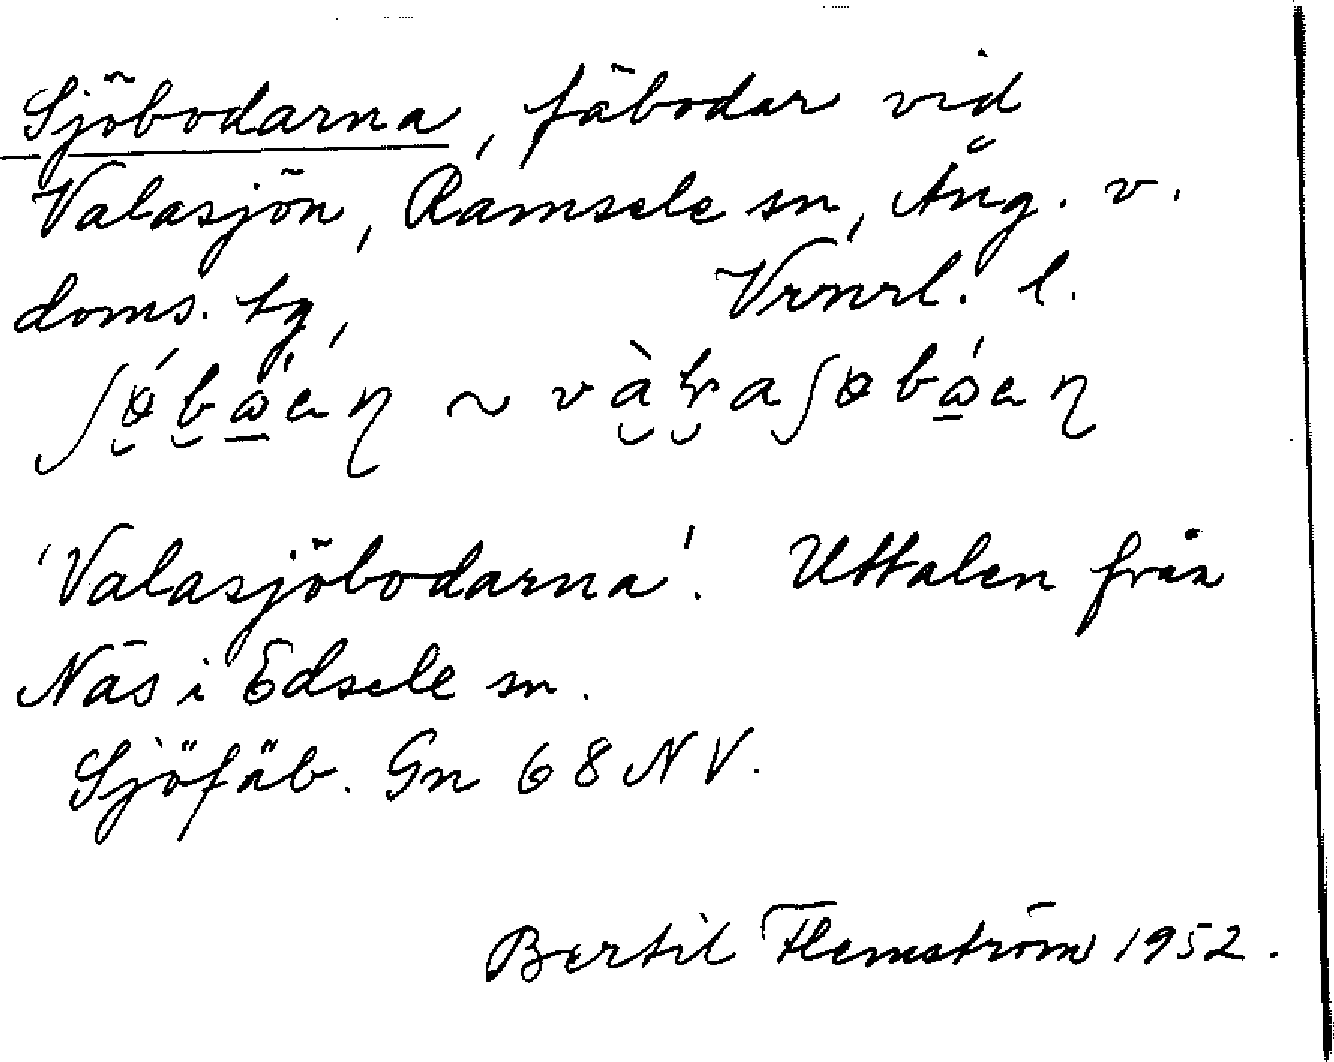 Sjöbodarna, fäbodar vid
Valasjön, Ramsele sn, Ång. v.
doms. tg,
'Valasjöbodarna'. Uttalen från
Näs i Edsele sn.
Sjöfäb. Gn 68 NV.
Bertil Flemström 1952.